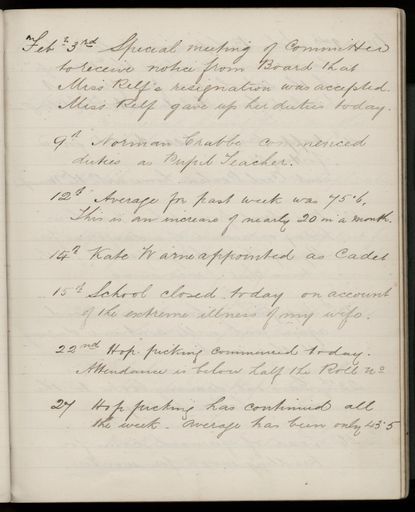 Feb 3rd Special meeting of Committee
to receive notice from Board that
Miss Relf's resignation was accepted.
Miss Relf gave up her duties today.
9th Norman Crabbe commenced
duties as Pupil Teacher.
12th Average for past week was 75.6,
This is an increase of nearly 20 in a month.
14th Kate Warne appointed as Cadet
15th School closed today on account
of the extreme illness of my wife.
22nd Hop picking commenced today.
Attendance is below half the Roll No
27 Hop picking has continued all
the week. Average has been only 43.5